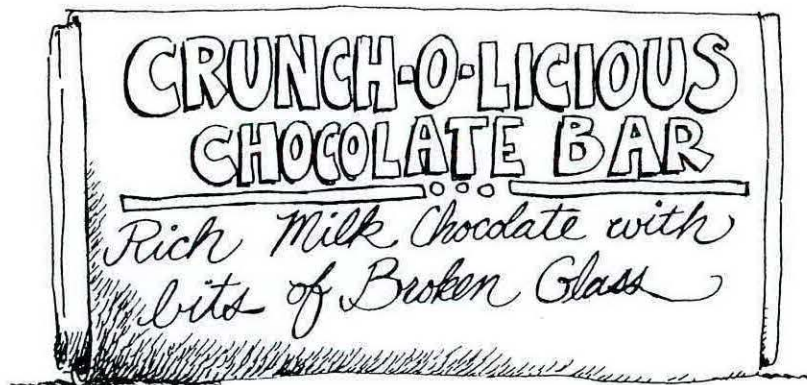 CRUNCH-O-LICIOUS
CHOCOLATE BAR
Rich Milk Chocolate with
bits of Broken Glass